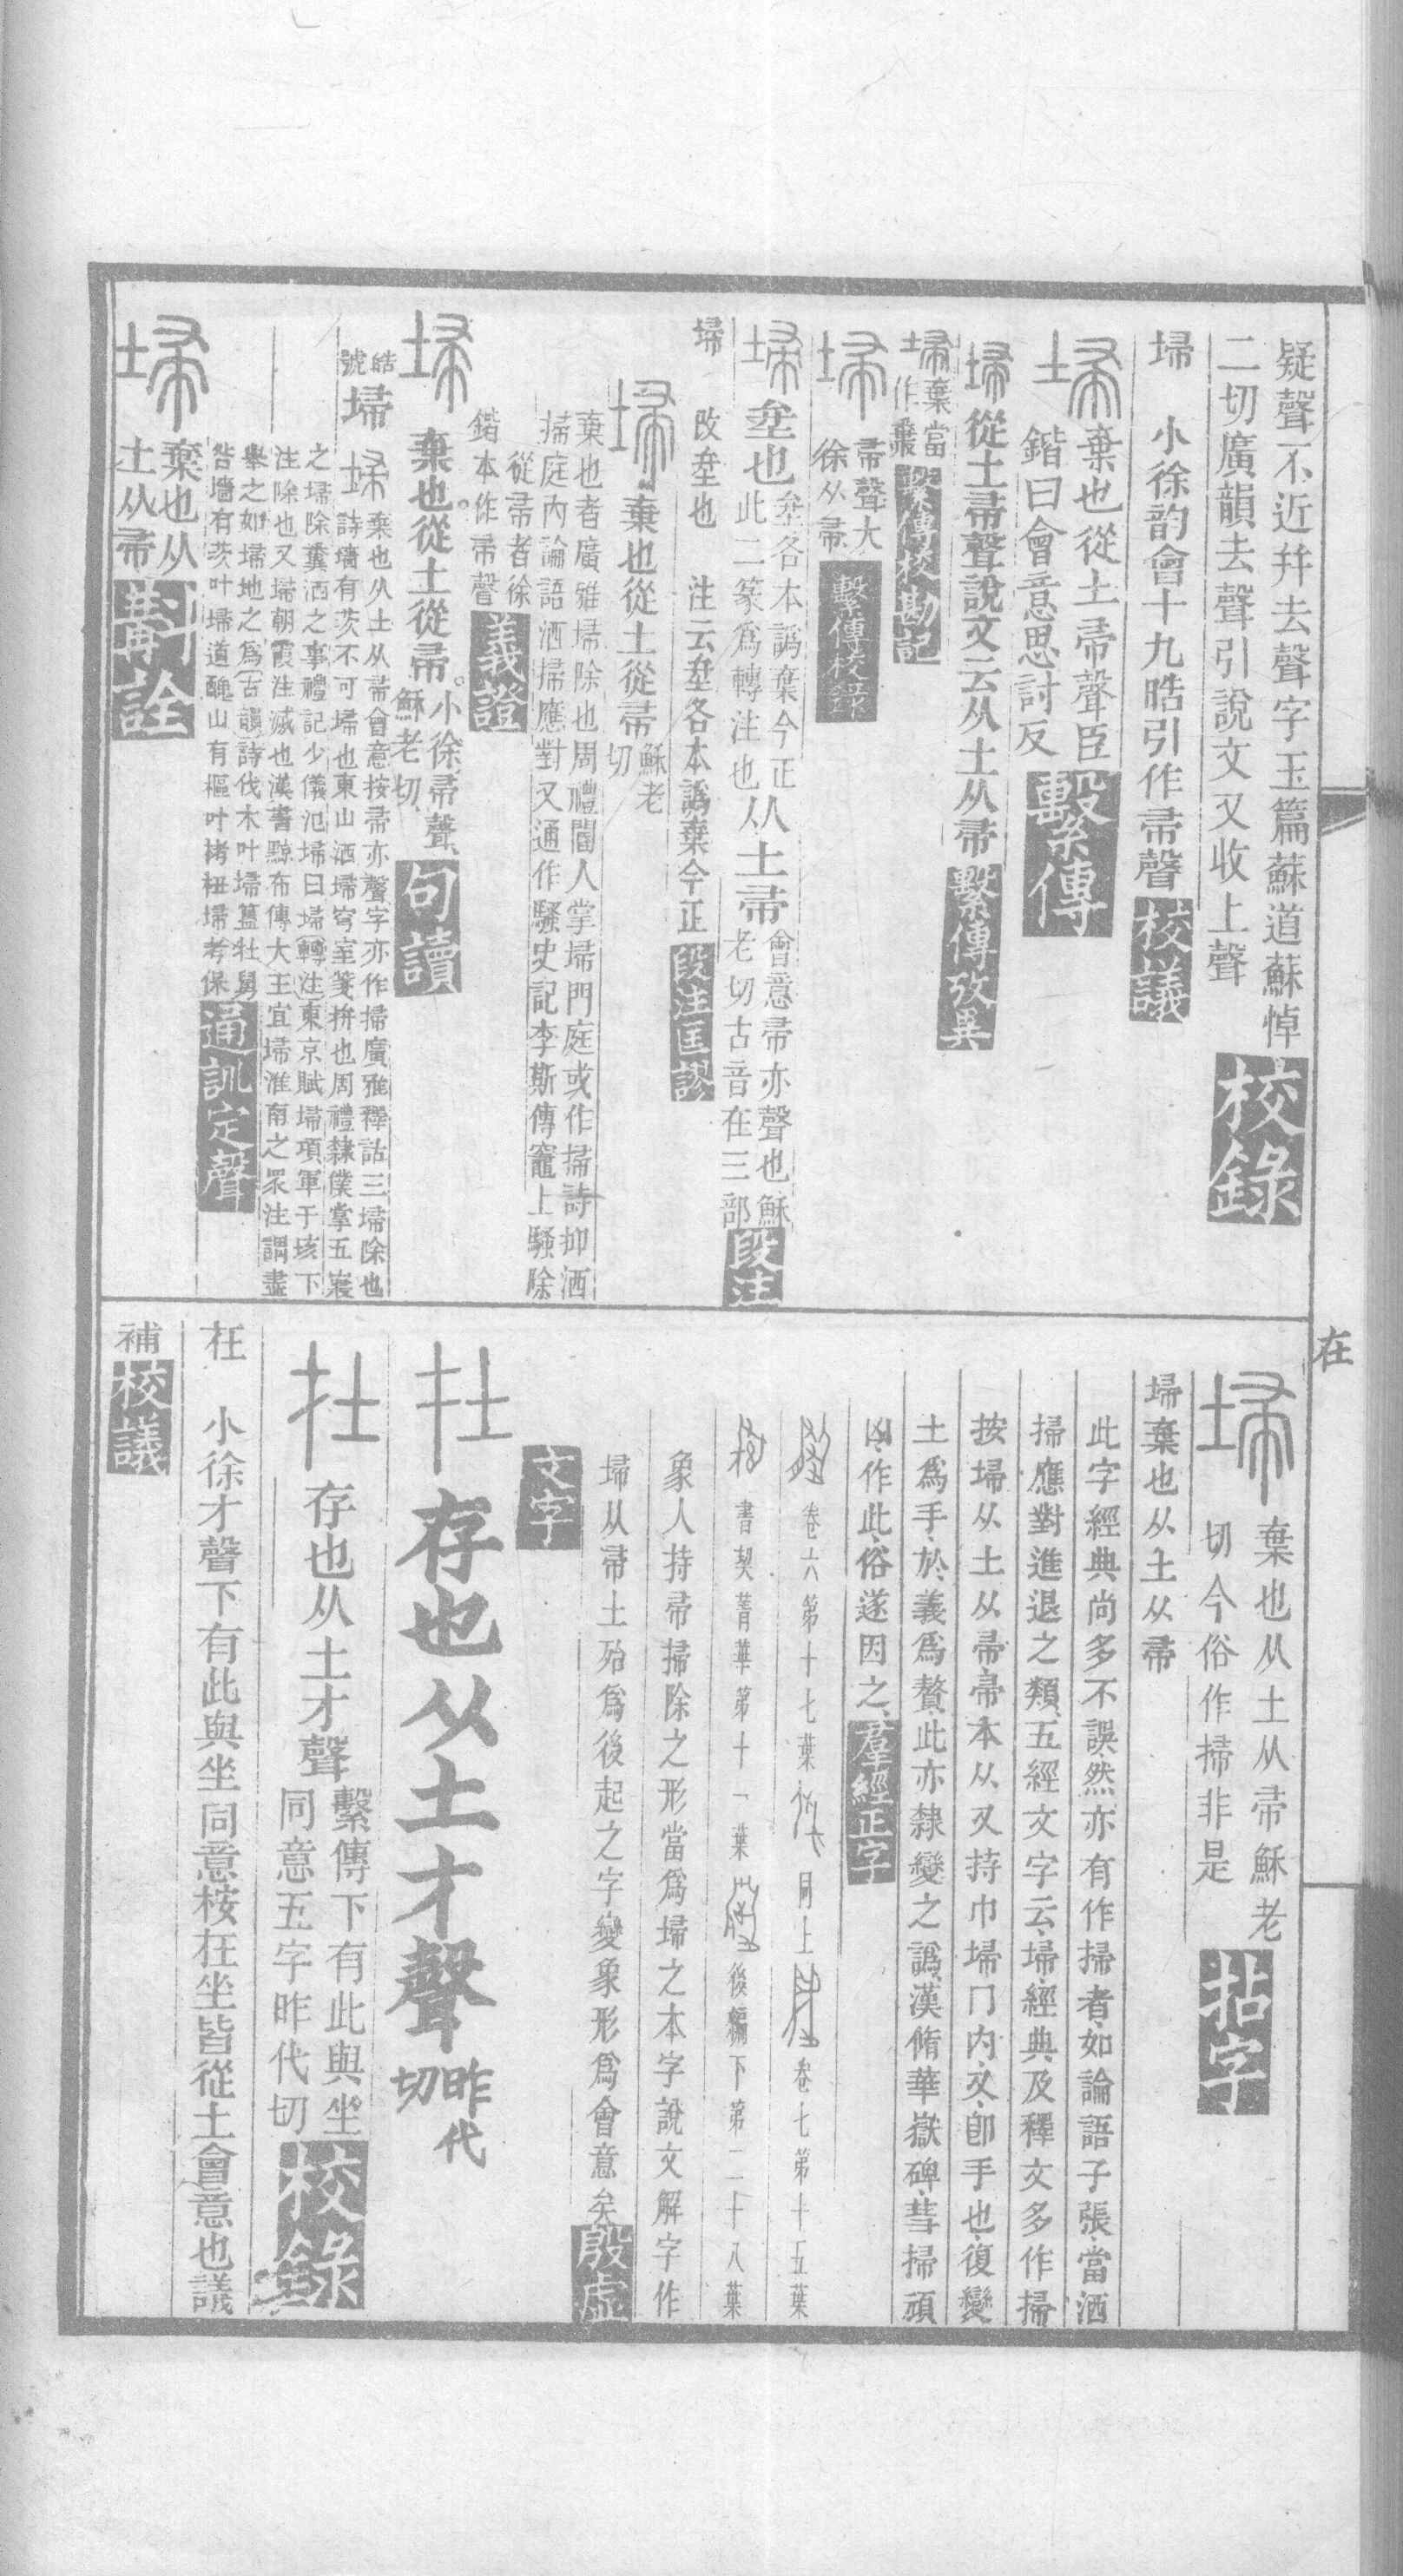 疑聲不近幷去聲字玉篇蘇道蘇悼
二切廣韻去聲引說文又收上聲
校錄
埽　小徐韵會十九晧引作帚聲校議
棄也從土帚聲臣
鍇曰會意思討反
繫傳
從土帚聲說文云从土从帚繫傳攷異
棄當
作糞
繫傳校勘記
帚聲大
徐从帚
繫傳校錄
坌也
坌各本譌棄今正
此二篆爲轉注也
从土帚
會意帚亦聲也穌
老切古音在三部
段注
埽　改坌也　注云坌各本譌棄今正段注匡謬
棄也從土從帚
穌老
切
棄也者廣雅埽除也周禮閽人掌埽門庭或作掃詩抑洒
掃庭內論語洒掃應對又通作騷史記李斯傳竈上騷除
從帚者徐
鍇本作帚聲
義證
棄也從土從帚
小徐帚聲
穌老切
句讀
皓
號
埽
棄也从土从帚會意按帚亦聲字亦作掃廣雅釋詁三埽除也
詩墻有茨不可埽也東山洒埽穹室箋拚也周禮隸僕掌五寢
之埽除糞洒之事禮記少儀氾埽曰埽轉注東京賦埽項軍于垓下
注除也又埽朝霞注滅也漢書黥布傳大王宜埽淮南之眾注謂盡
舉之如埽地之爲古韻詩伐木叶埽簋牡舅
咎墻有茨叶埽道醜山有樞叶栲杻埽考保
通訓定聲
棄也从
土从帚
斠詮
棄也从土从帚穌老
切今俗作掃非是
拈字
埽棄也从土从帚
此字經典尚多不誤然亦有作掃者如論語子張當洒
掃應對進退之類五經文字云埽經典及釋文多作掃
按埽从土从帚帚本从又持巾埽冂內又卽手也復變
土爲手於義爲贅此亦隸變之譌漢脩華嶽碑彗掃頑
凶作此俗遂因之羣經正字
卷六第十七葉　同上　卷七第十五葉
書契菁華第十一葉　後編下第二十八葉
象人持帚掃除之形當爲埽之本字說文解字作
埽从帚土殆爲後起之字變象形爲會意矣殷虛
文字
存也从土才聲
昨代
切
存也从土才聲
繫傳下有此與坐
同意五字昨代切
校錄
在　小徐才聲下有此與坐同意桉在坐皆從土會意也議
補校議
在